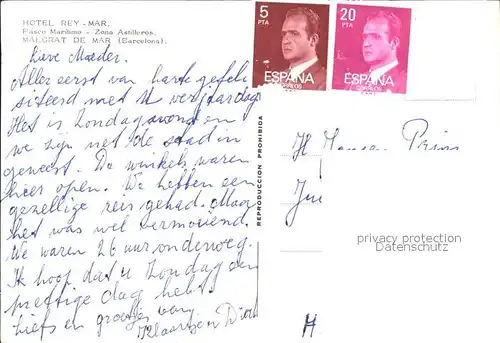 HOTEL REY-MAR.
Paseo Marítimo - Zona Astilleros.
MALGRAT DE MAR (Barcelona).
Lieve Moeder.
Allereerst van harte gefeli
siteerd met U verjaardag.
Het is Zondagavond en
we zijn net de stad in
geweest. De winkels waren
hier open. We hebben een
gezellige reis gehad. Maar
het was wel vermoeiend.
We waren 26 uur onderweg.
Ik hoop dat u Zondag een
prettige dag hebt
liefs en groetjes van
REPRODUCCION PROHIBIDA
5
PTA
ESPAÑA
CORREOS
20
PTA
ESPAÑA
CORREOS
privacy protection
by AKPool